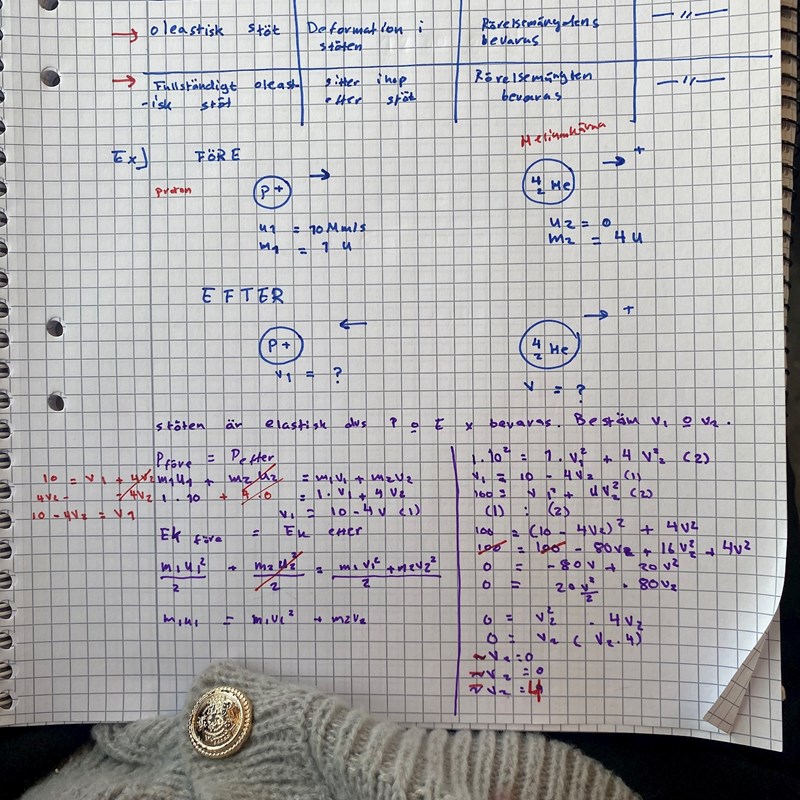 → oleastisk stöt Deformation i stöten Rörelsemängdens bevaras —"—
→ Fullständigt oleast -isk stöt sitter ihop efter stöt Rörelsemängten bevaras —"—
Ex] FÖRE Heliumkärna
proton P+ → 4 2 He → +
u1 = 10 Mm/s u2 = 0
m1 = 1 u m2 = 4 u
EFTER
P+ ← 4 2 He → +
v1 = ? v = ?
stöten är elastisk dvs P o E x bevaras. Bestäm v1 o v2.
Pföre = Pefter
10 = v1 + 4v2 m1u1 + m2u2 = m1v1 + m2v2
4v2 - -4v2 1 · 10 + 4·0 = 1·v1 + 4v2
10 - 4v2 = v1 v1 = 10 - 4v (1)
Ek före = Ek efter
m1u1²/2 + m2u2²/2 = m1v1² + m2v2²/2
m1u1 = m1v1² + m2v2
1·10² = 1·v1² + 4v2² (2)
v1 = 10 - 4v2 (1)
100 = v1² + 4v2² (2)
(1) : (2)
100 = (10 - 4v2)² + 4v2
100 = 100 - 80v2 + 16v2² + 4v²
0 = -80v + 20v²
0 = 20v²/2 · 80v2
0 = v2² · 4v2
0 = v2 (v2·4)
~v2 = 0
~v2 = 0
~v2 = 4